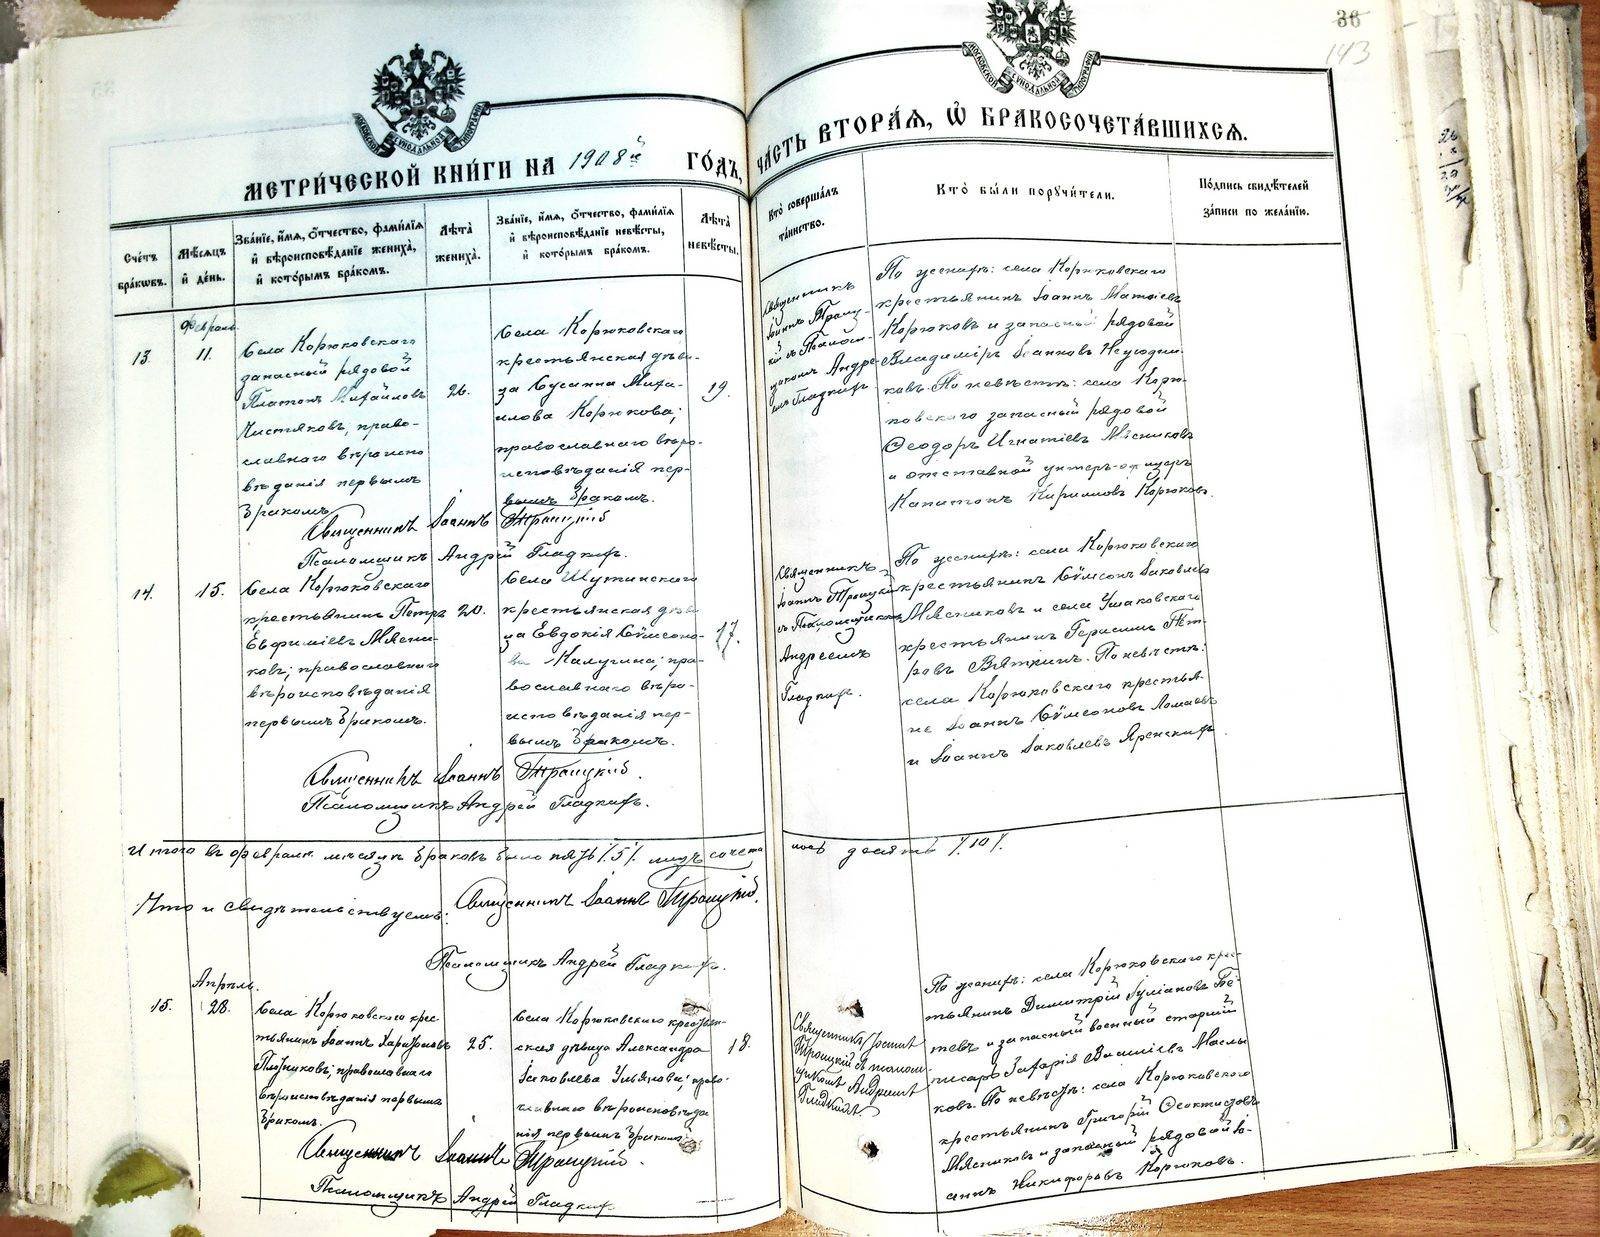 36
143
МЕТРИ́ЧЕСКОЙ КНИ́ГИ НА 1908й ГО́ДЪ,
ЧА́СТЬ ВТОРА́Я, Ѡ҆ БРАКОСОЧЕТА́ВШИХСѦ.
Сче́тъ бра́кωвъ.
Мѣ́сяцъ и҆ де́нь.
Зва́нїе, и҆́мя, ѻ҆́тчество, фами́лїя
и҆ вѣроисповѣ́данїе жениха̀,
и҆ кото́рымъ бра́комъ.
Лѣ́та жениха̀.
Зва́нїе, и҆́мя, ѻ҆́тчество, фами́лїя
и҆ вѣроисповѣ́данїе невѣ́сты,
и҆ кото́рымъ бра́комъ.
Лѣ́та невѣ́сты.
Кто̀ соверша́лъ
та́инство.
Кто̀ бы́ли поручи́тели.
По́дпись свидѣ́телей
за́писи по жела́нїю.
13.
Февраль
11.
Села Корюковскаго
запасный рядовой
Платонъ Михайловъ
Чистяковъ, право-
славнаго вѣроиспо
вѣданія первымъ
бракомъ
26.
Села Корюковскаго
крестьянская дѣви-
ца Сусанна Миха-
илова Корюкова;
православнаго вѣро-
исповѣданія пер-
вымъ бракомъ.
19.
Священникъ
Іоаннъ Троиц-
кій съ Псалом-
щикомъ Андре-
емъ Гладкихъ
По женихѣ: села Корюковскаго
крестьянинъ Іоаннъ Матѳіевъ
Корюковъ и запасный рядовой
Владиміръ Іоанновъ
По невѣстѣ: села Корю-
ковскаго запасный рядовой
Ѳеодоръ Игнатіевъ Мясниковъ
и отставной унтеръ-офицеръ
Капитонъ Кириловъ Корюковъ.
Священникъ Іоаннъ Троицкій
Псаломщикъ Андрей Гладкихъ.
14.
15.
Села Корюковскаго
крестьянинъ Петръ
Евфиміевъ Мясни-
ковъ; православнаго
вѣроисповѣданія
первымъ бракомъ.
20.
Села Шутинскаго
крестьянская дѣви
ца Евдокія Сѵмеоно-
ва Калугина; пра-
вославнаго вѣро-
исповѣданія пер-
вымъ бракомъ.
17.
Священникъ
Іоаннъ Троицкій
съ Псаломщикомъ
Андреемъ
Гладкихъ.
По женихѣ: села Корюковскаго
крестьянинъ Сѵмеонъ Іаковлевъ
Мясниковъ и села Ушаковскаго
крестьянинъ Герасимъ Пет-
ровъ Вяткинъ. По невѣстѣ:
села Корюковскаго крестья-
не Іоаннъ Сѵмеоновъ Ломаевъ
и Іоаннъ Іаковлевъ Яренскихъ
Священникъ Іоаннъ Троицкій.
Псаломщикъ Андрей Гладкихъ.
Итого въ февралѣ мѣсяцѣ браковъ было пять /5/ лицъ сочета
лось десять /10/
Что и свидѣтельствуемъ: Священникъ Іоаннъ Троицкій.
Псаломщикъ Андрей Гладкихъ.
15.
Апрѣль.
28.
Села Корюковскаго крес-
тьянинъ Іоаннъ Харитоновъ
Плотниковъ; православнаго
вѣроисповѣданія первымъ
бракомъ.
25.
Села Корюковскаго крестьян-
ская дѣвица Александра
Іаковлева Ульянова; право-
славнаго вѣроисповѣда
нія, первымъ бракомъ.
18.
Священникъ Іоаннъ
Троицкій съ псалом-
щикомъ Андреемъ
Гладкихъ
По женихѣ: села Корюковскаго крес-
тьянинъ Димитрій Іуліановъ
и запасный военный старшій
писарь Захарія Василіевъ Маслы
ковъ. По невѣстѣ: села Корюковскаго
крестьянинъ Григорій Ѳеоктистовъ
Мясниковъ и запасный рядовой Іо-
аннъ Никифоровъ Корюковъ.
Священникъ Іоаннъ Троицкій.
Псаломщикъ Андрей Гладкихъ